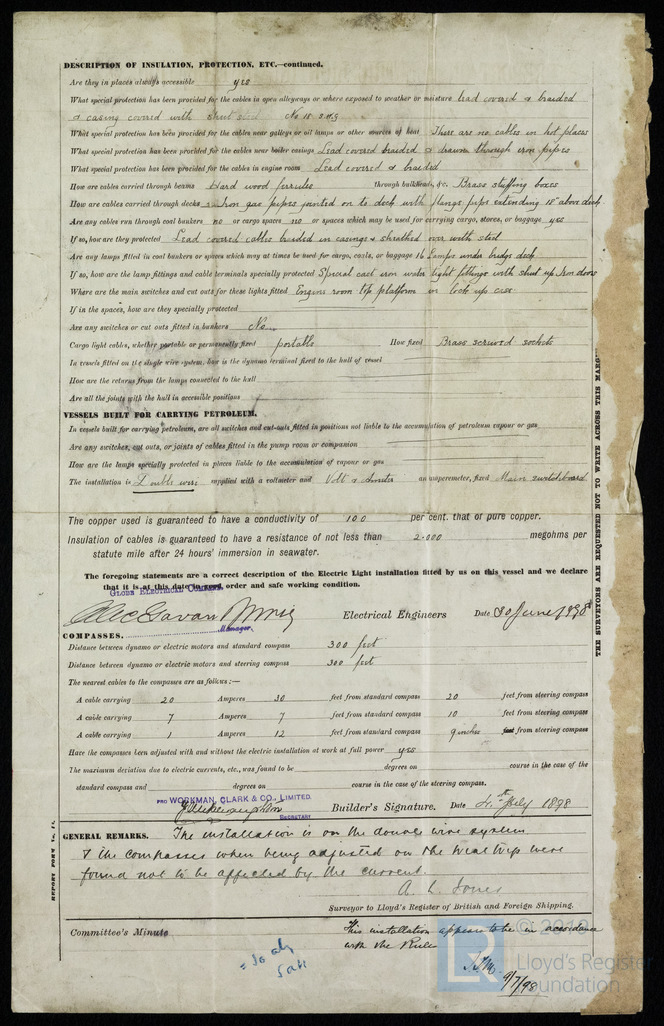 DESCRIPTION OF INSULATION, PROTECTION, ETC.—continued.
Are they in places always accessible yes
What special protection has been provided for the cables in open alleyways or where exposed to weather or moisture lead covered & braided
& casing covered with sheet steel No 18 S.W.G
What special protection has been provided for the cables near galleys or oil lamps or other sources of heat There are no cables in hot places
What special protection has been provided for the cables near boiler casings Lead covered braided & drawn through iron pipes
What special protection has been provided for the cables in engine room Lead covered & braided
How are cables carried through beams Hard wood ferrules through bulkheads, &c. Brass stuffing boxes
How are cables carried through decks in Iron gas pipes jointed on to deck with flangs pipes extending 18" above deck
Are any cables run through coal bunkers no or cargo spaces no or spaces which may be used for carrying cargo, stores, or baggage yes
If so, how are they protected Lead covered cables braided in casings & sheathed over with steel
Are any lamps fitted in coal bunkers or spaces which may at times be used for cargo, coals, or baggage 16 Lamps under bridge deck
If so, how are the lamp fittings and cable terminals specially protected Special cast iron water tight fittings with shut up Iron doors
Where are the main switches and cut outs for these lights fitted Engine room top platform in lock up case
If in the spaces, how are they specially protected
Are any switches or cut outs fitted in bunkers No
Cargo light cables, whether portable or permanently fixed portable How fixed Brass screwed sockets
In vessels fitted on the single wire system, how is the dynamo terminal fixed to the hull of vessel
How are the returns from the lamps connected to the hull
Are all the joints with the hull in accessible positions
VESSELS BUILT FOR CARRYING PETROLEUM.
In vessels built for carrying petroleum, are all switches and cut-outs fitted in positions not liable to the accumulation of petroleum vapour or gas
Are any switches, cut outs, or joints of cables fitted in the pump room or companion
How are the lamps specially protected in places liable to the accumulation of vapour or gas
The installation is Double wire supplied with a voltmeter and Volt & Ameter an amperemeter, fixed Main switchboard
The copper used is guaranteed to have a conductivity of 100 per cent. that of pure copper.
Insulation of cables is guaranteed to have a resistance of not less than 2.000 megohms per
statute mile after 24 hours' immersion in seawater.
The foregoing statements are a correct description of the Electric Light installation fitted by us on this vessel and we declare
that it is at this date in good order and safe working condition.
GLOBE ELECTRICAL COMPANY.
Electrical Engineers Date 30 June 1898
Manager
COMPASSES.
Distance between dynamo or electric motors and standard compass 300 feet
Distance between dynamo or electric motors and steering compass 300 feet
The nearest cables to the compasses are as follows:—
A cable carrying 20 Amperes 30 feet from standard compass 20 feet from steering compass
A cable carrying 7 Amperes 7 feet from standard compass 10 feet from steering compass
A cable carrying 1 Amperes 12 feet from standard compass 9 inches feet from steering compass
Have the compasses been adjusted with and without the electric installation at work at full power yes
The maximum deviation due to electric currents, etc., was found to be degrees on course in the case of the
standard compass and degrees on course in the case of the steering compass.
PRO WORKMAN, CLARK & CO., LIMITED.
Builder's Signature. Date 4th July 1898
SECRETARY
GENERAL REMARKS. The installation is on the double wire system
& the compasses when being adjusted on the trial trip were
found not to be affected by the current.
A. L. Jones
Surveyor to Lloyd's Register of British and Foreign Shipping.
Committee's Minute
This installation appears to be in accordance
with the Rules
9/7/98
THE SURVEYORS ARE REQUESTED NOT TO WRITE ACROSS THIS MARGIN.
© 2019
LR
Lloyd's Register
Foundation